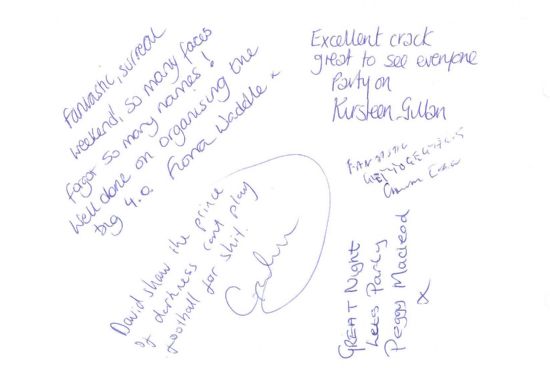 Fantastic, surreal
weekend, so many faces
forgot so many names!
Well done on organising the
big 4.0. Fiona Waddle x
Excellent crack
great to see everyone
Party on
Kirsteen Gillan
FANTASTIC
GREAT NIGHT
Lets Party
Peggy Macleod
X
David Shaw the prince
of darkness cant play
football for shit.